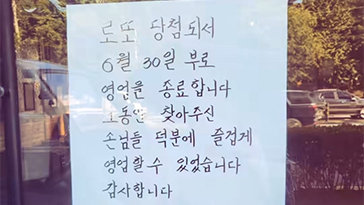 로또 당첨되서
6월 30일 부로
영업을 종료합니다
그동안 찾아주신
손님들 덕분에 즐겁게
영업할 수 있었습니다
감사합니다